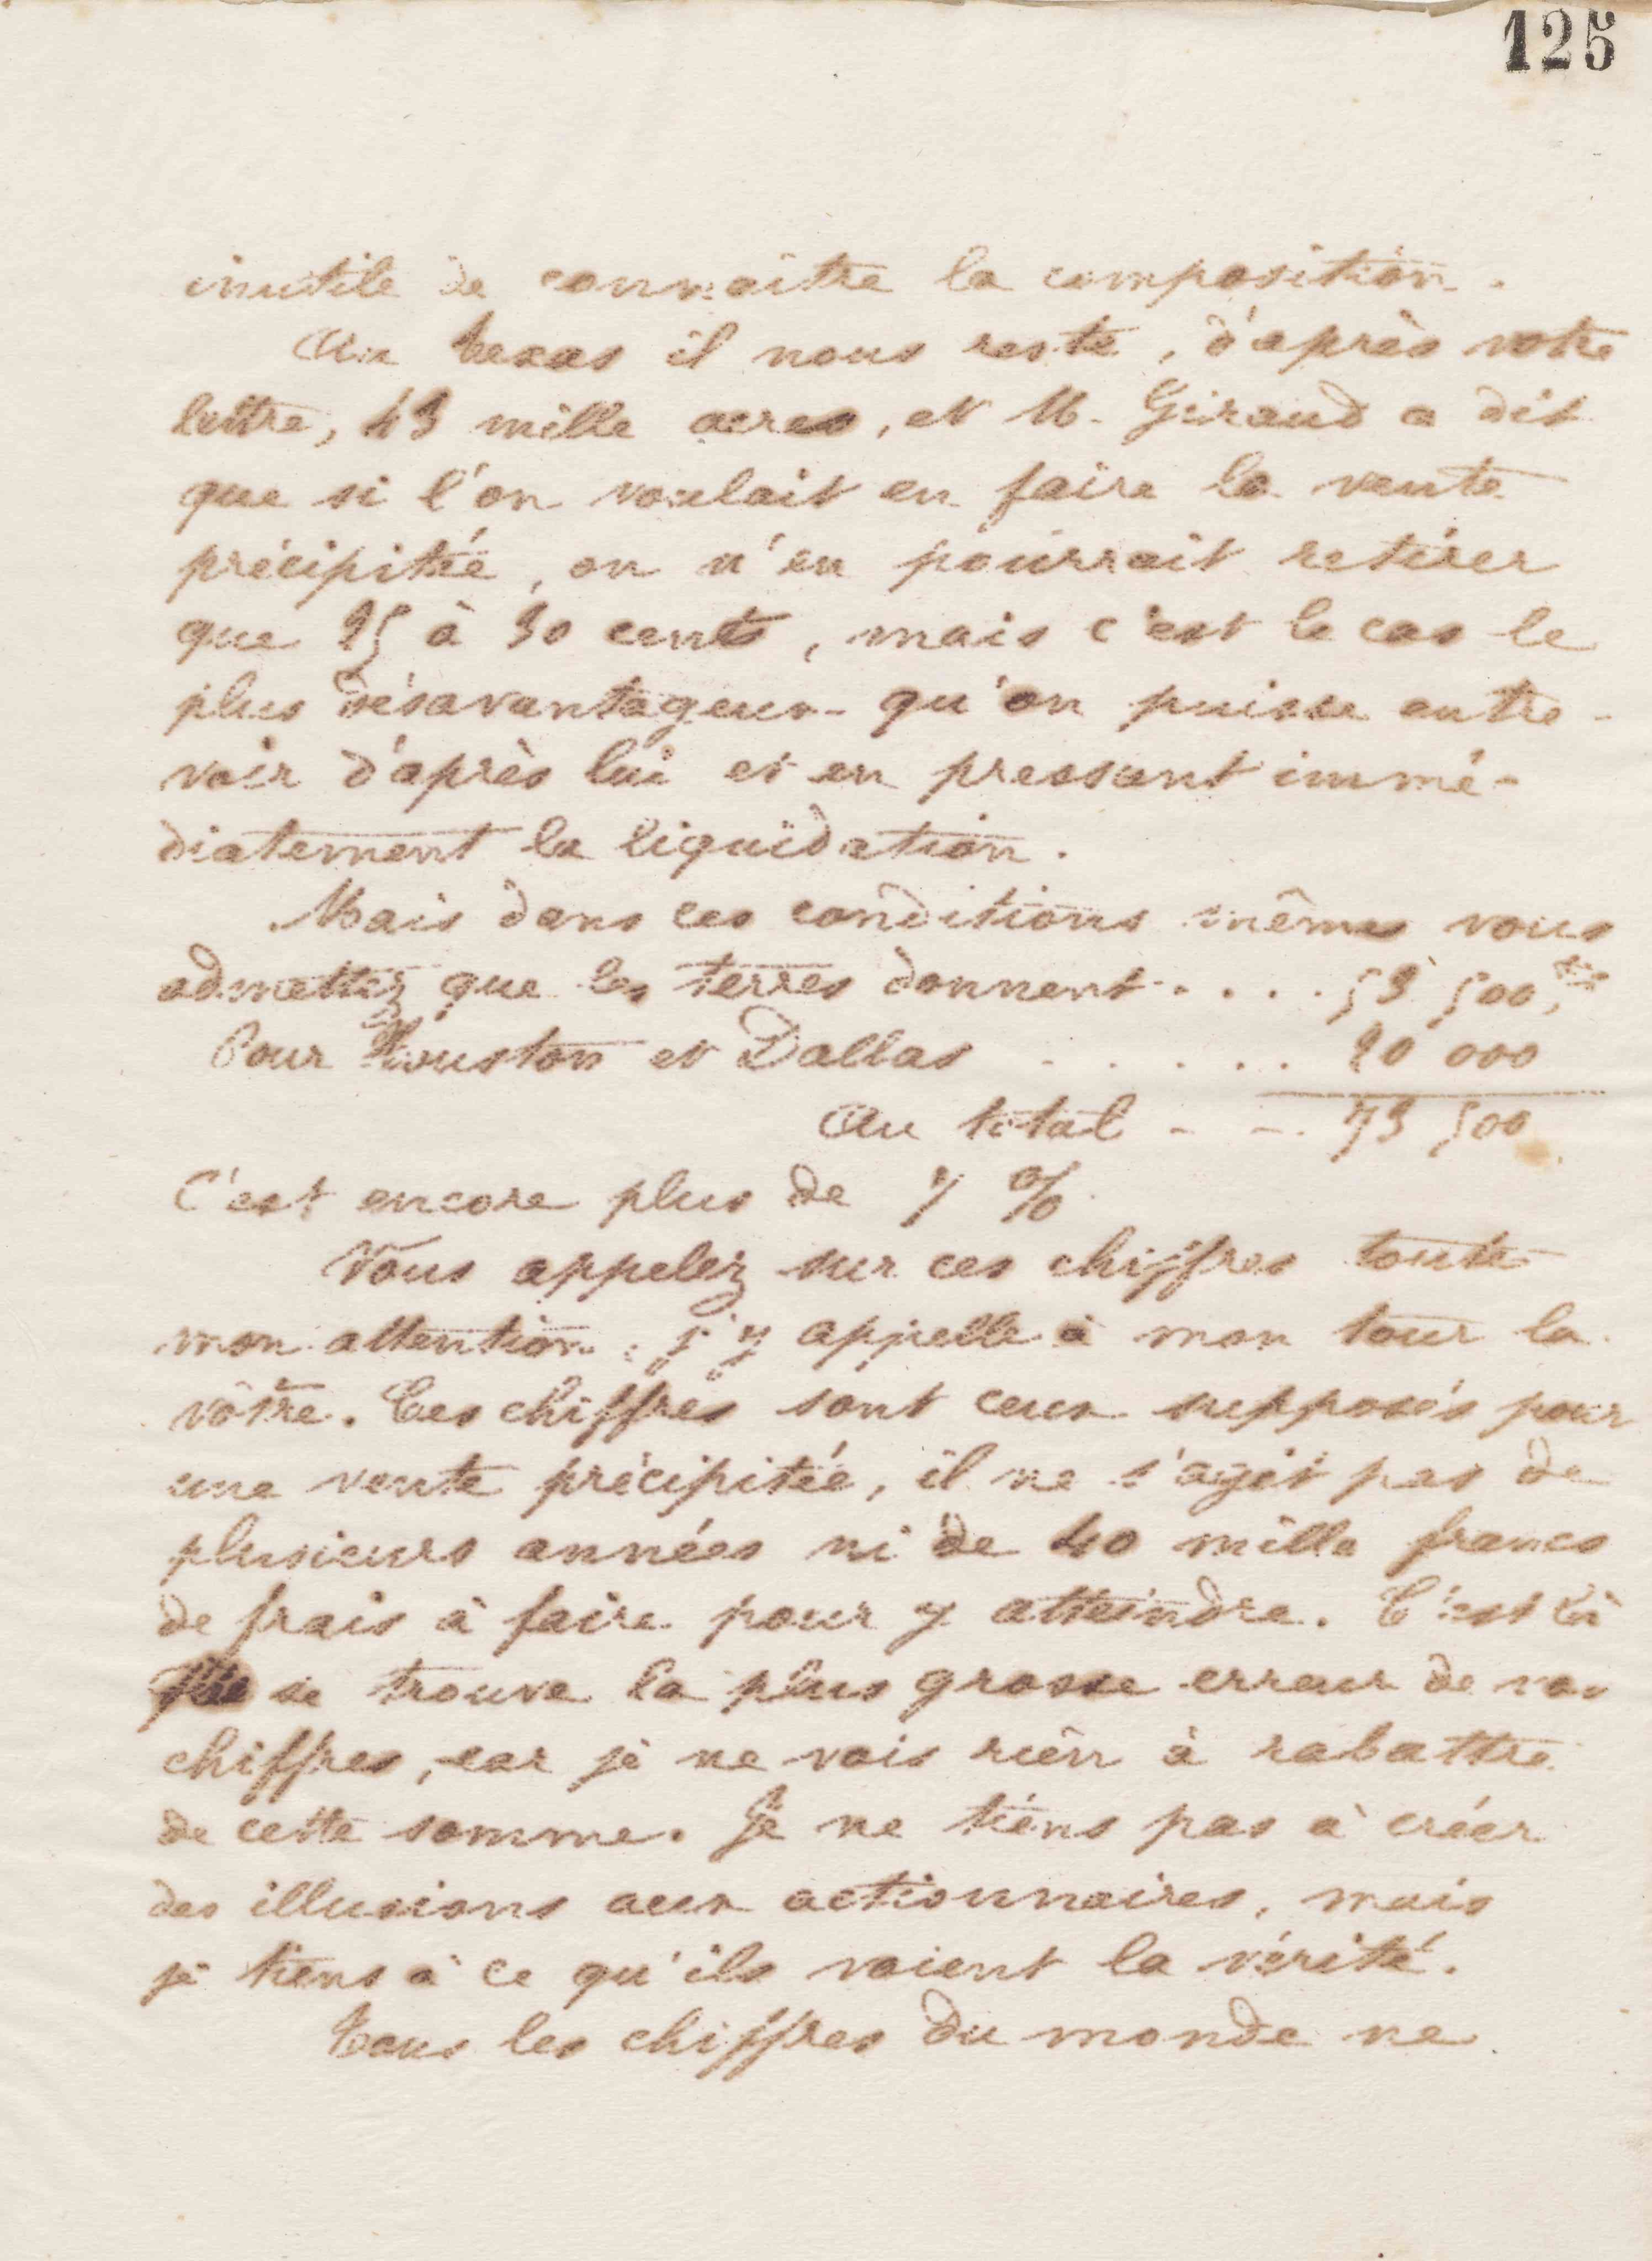 125
inutile de connaître la composition.
Au Texas il nous reste, d'après votre
lettre, 43 mille acres, et M. Giraud a dit
que si l'on voulait en faire la vente
précipitée, on n'en pourrait retirer
que 25 à 30 cents, mais c'est le cas le
plus désavantageux qu'on puisse entre-
voir d'après lui et en pressant immé-
diatement la liquidation.
Mais dans ces conditions mêmes vous
admettez que les terres donnent . . . . 53 500,
Pour Houston et Dallas . . . . . 20 000
Au total - - . 73 500
C'est encore plus de 7 %
Vous appelez sur ces chiffres toute
mon attention ; j'y appelle à mon tour la
vôtre. Ces chiffres sont ceux supposés pour
une vente précipitée, il ne s'agit pas de
plusieurs années ni de 40 mille francs
de frais à faire pour y atteindre. C'est là
que se trouve la plus grosse erreur de vos
chiffres, car je ne vois rien à rabattre
de cette somme. Je ne tiens pas à créer
des illusions aux actionnaires, mais
je tiens à ce qu'ils voient la vérité.
Tous les chiffres du monde ne